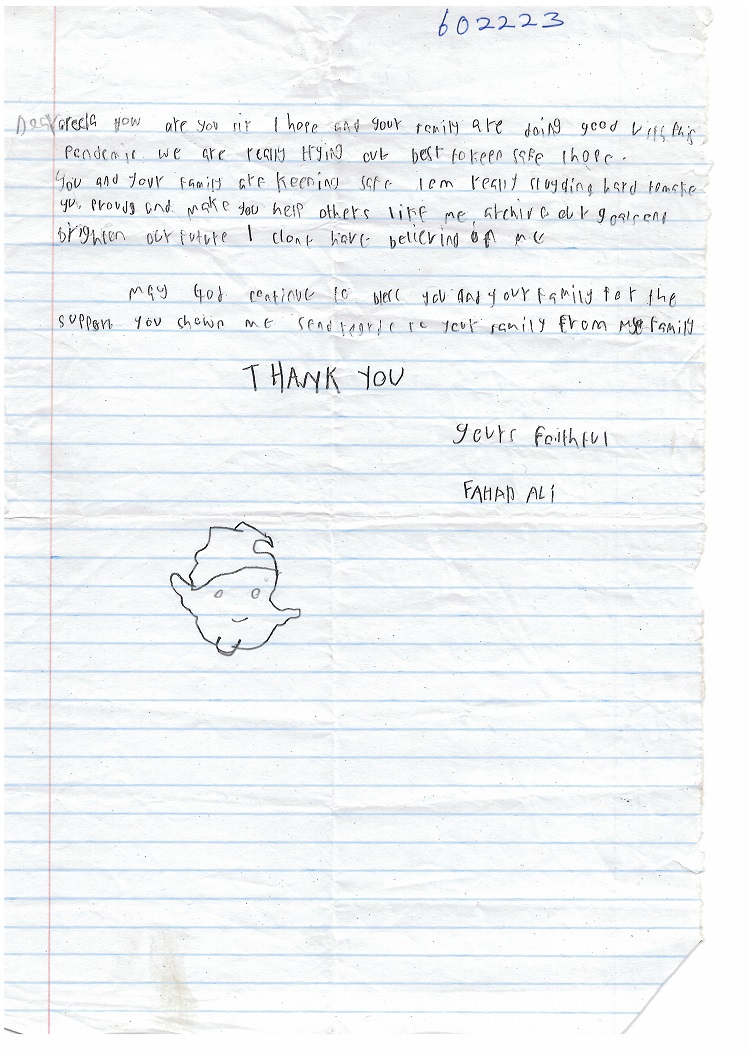 602223
Dear are you sir I hope and your family are doing good with this
pandemic we are really trying out best to keep safe I hope.
You and your family are keening safe I am really studying hard to make
you proudg and make you help others like me, archive our goals and
brighten our future I have believing of me
may God continue to bless you and your family for the
support you shown me send to your family from my family
THANK YOU
yours faithful
FAHAD ALI